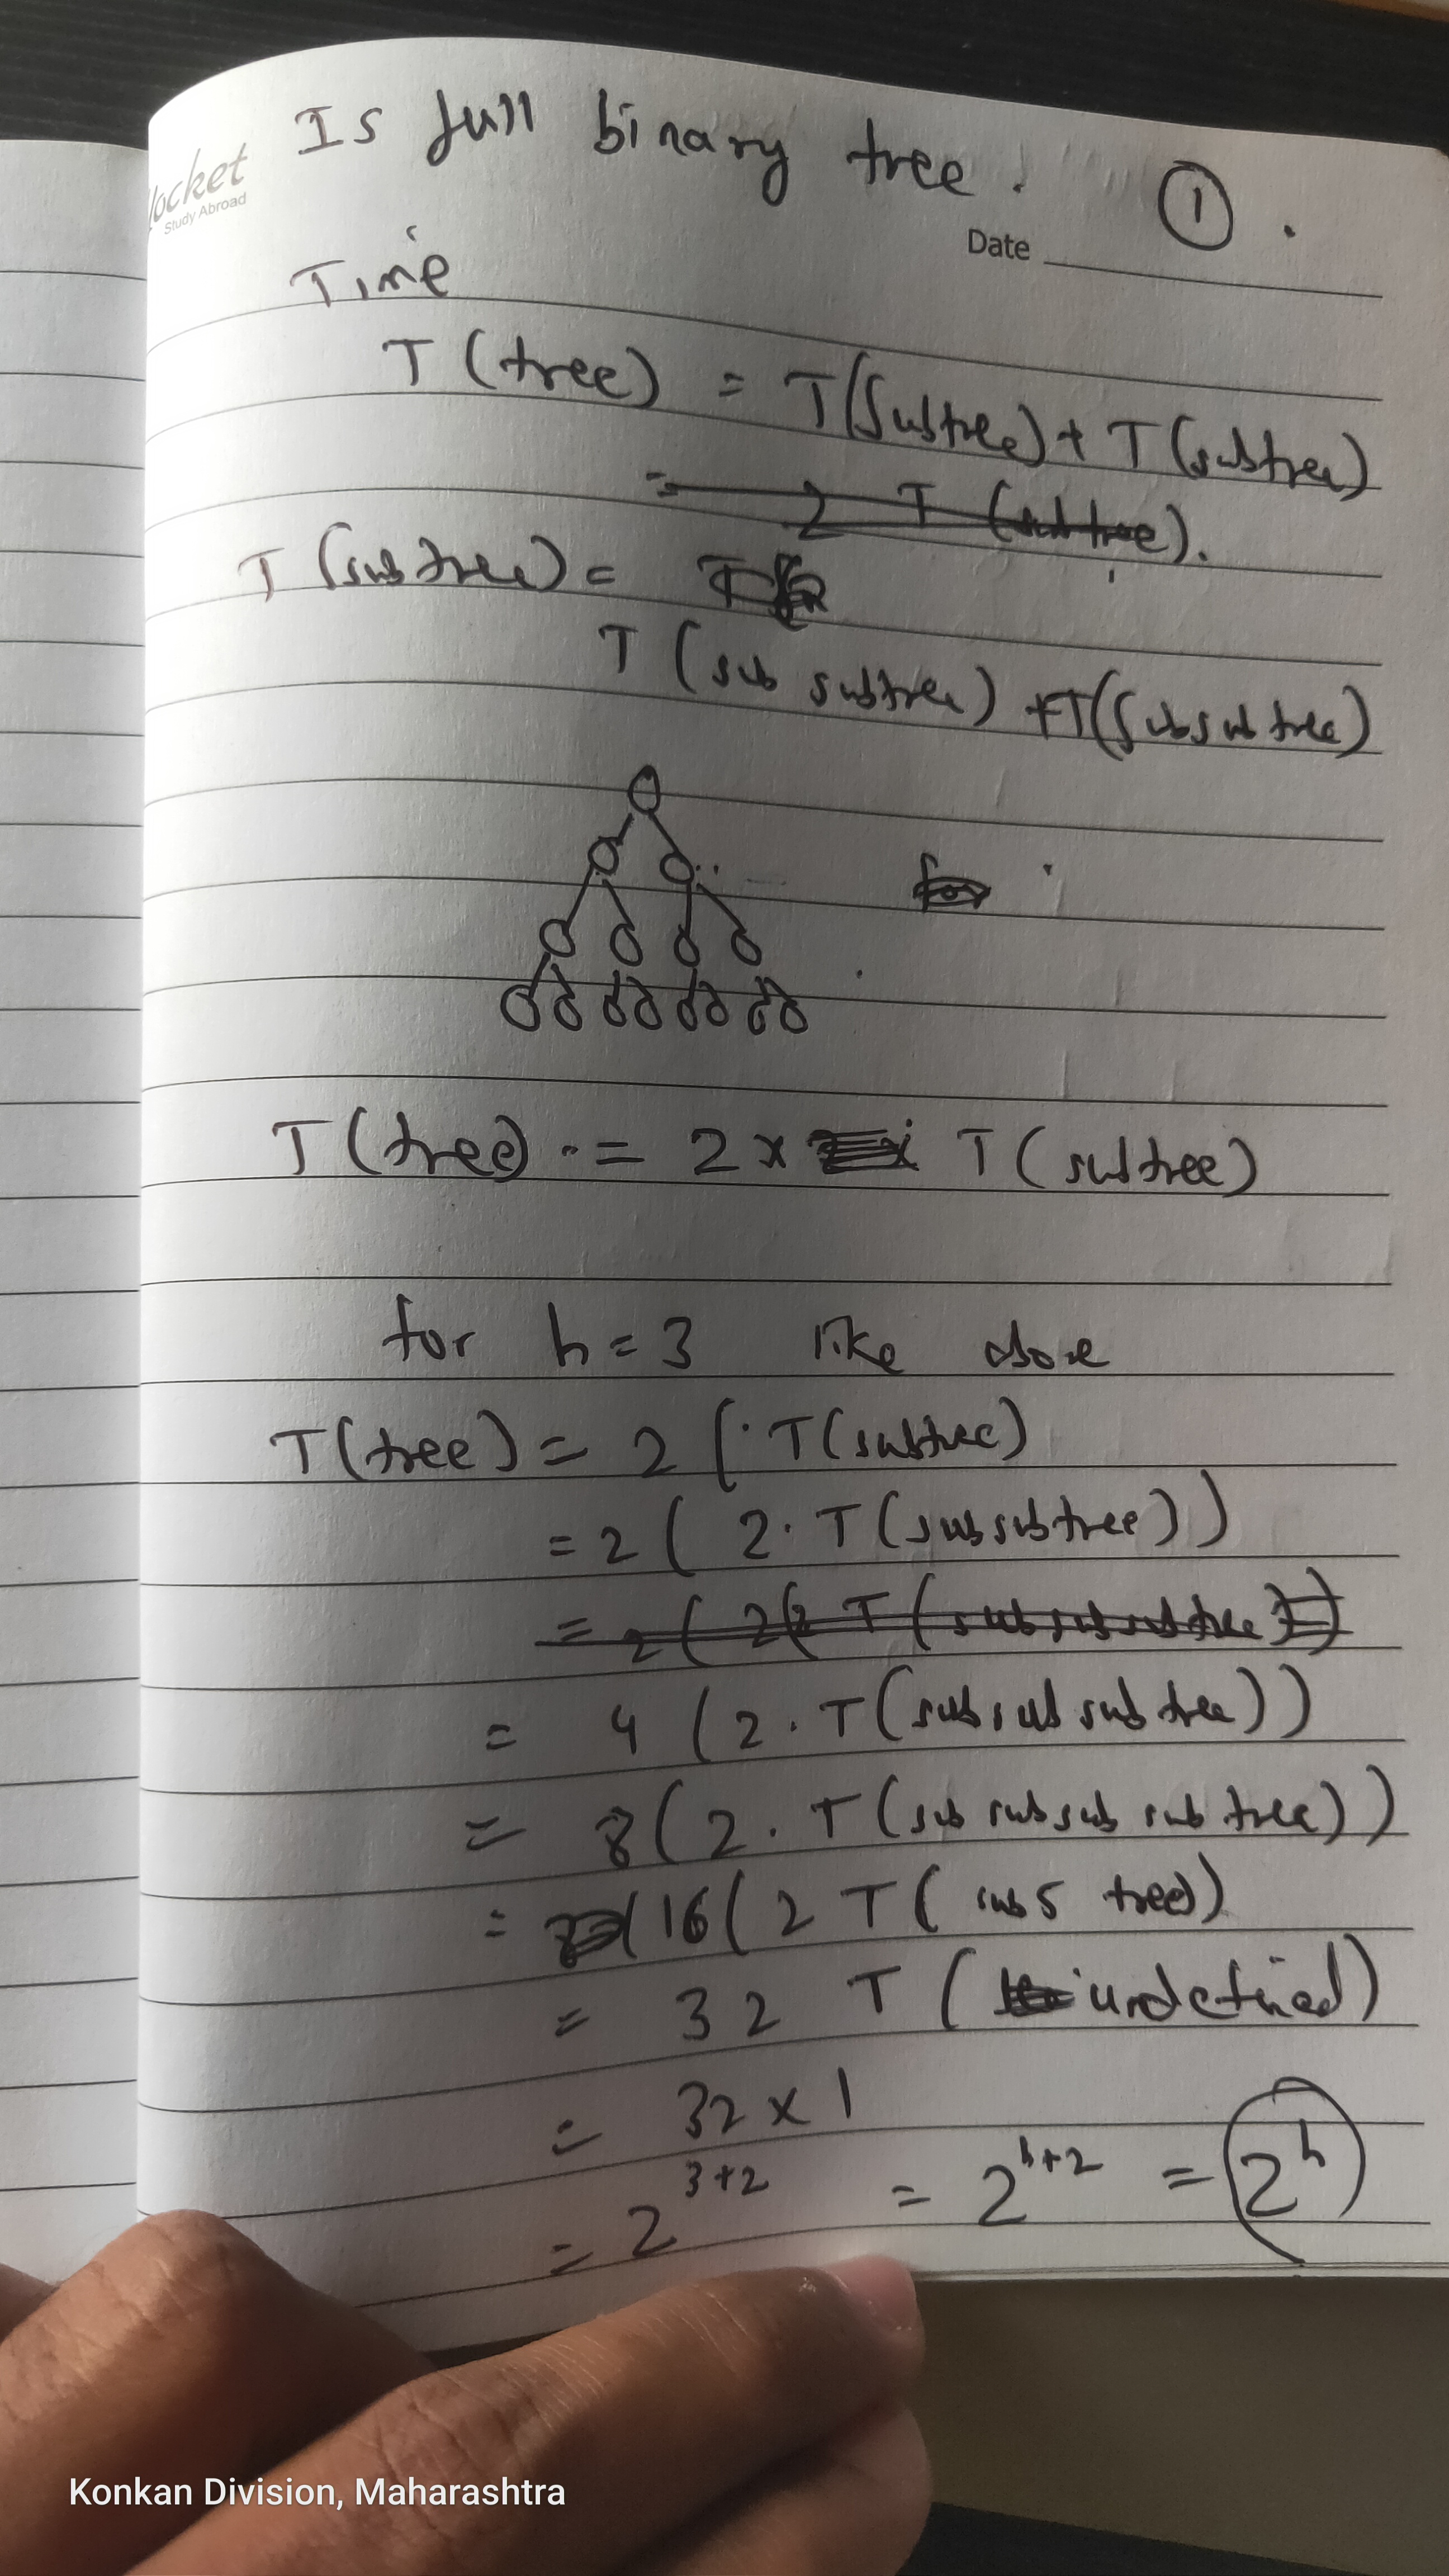 Is full binary tree. ①.
ocket
Study Abroad
Date
Time
T (tree) = T(Subtree) + T(subtree)
= 2 T (subtree).
T (subtree) =
T (sub subtree) + T(subsubtree)
T (tree) = 2 x T (subtree)
for h = 3 like above
T(tree) = 2 ( T(subtree)
= 2 ( 2. T (subsubtree))
= 2 ( 2(2 T (subsubsubtree)))
= 4 (2. T (subsubsubtree))
= 8 (2. T (sub sub sub sub tree))
= 16 ( 2 T ( sub 5 tree))
= 32 T ( undefined)
= 32 x 1
= 2^3+2 = 2^h+2 = 2^h
Konkan Division, Maharashtra